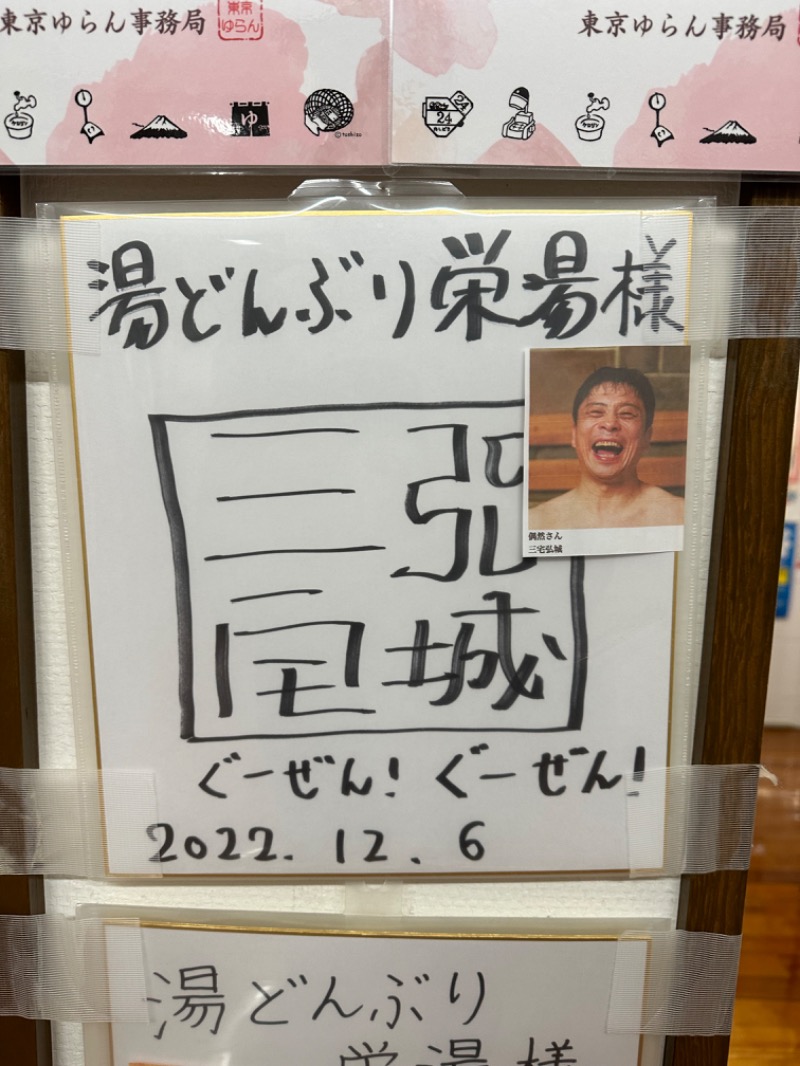 東京ゆらん事務局
東京ゆらん
東京ゆらん事務局
ゆ
24
湯どんぶり栄湯様
三宅
弘城
偶然さん
三宅弘城
ぐーぜん! ぐーぜん!
2022.12.6
湯どんぶり
栄湯様